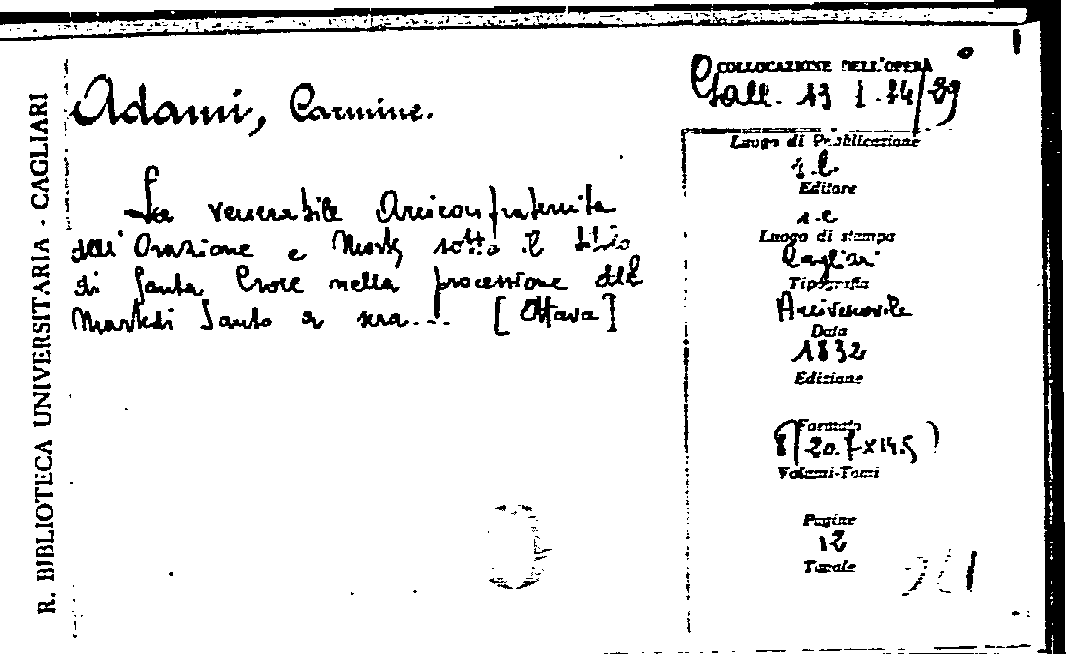 R. BIBLIOTECA UNIVERSITARIA - CAGLIARI
Adami, Carmine.
La venerabile Arciconfraternita
dell'Orazione e Morte sotto il titolo
di Santa Croce nella processione del
Martedi Santo a sera... [Ottava]
COLLOCAZIONE DELL'OPERA
Gall. 13 1.74/89
Luogo di Pubblicazione
s.l.
Editore
s.e
Luogo di stampa
Cagliari
Tipografia
Arcivescovile
Data
1832
Edizione
Formato
8(20.7x14.5)
Volumi-Tomi
Pagine
12
Tavole